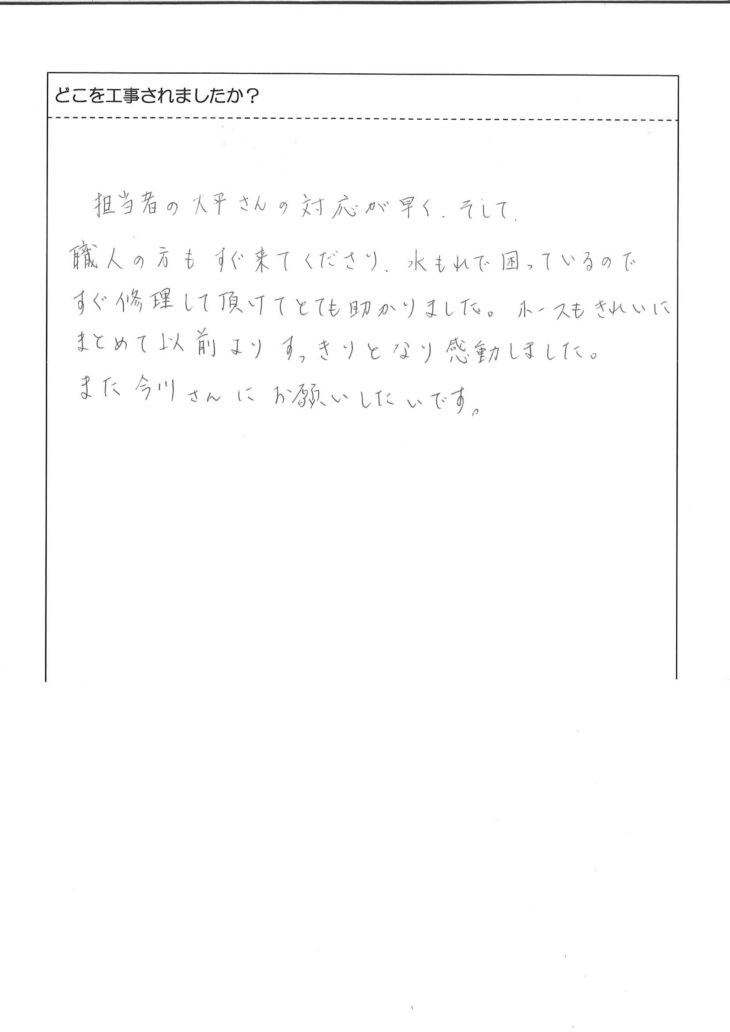 どこを工事されましたか？
担当者の大平さんの対応が早く、そして、
職人の方もすぐ来てくださり、水もれで困っているので
すぐ修理して頂けてとても助かりました。ホースもきれいに
まとめて以前よりすっきりとなり感動しました。
また今川さんにお願いしたいです。